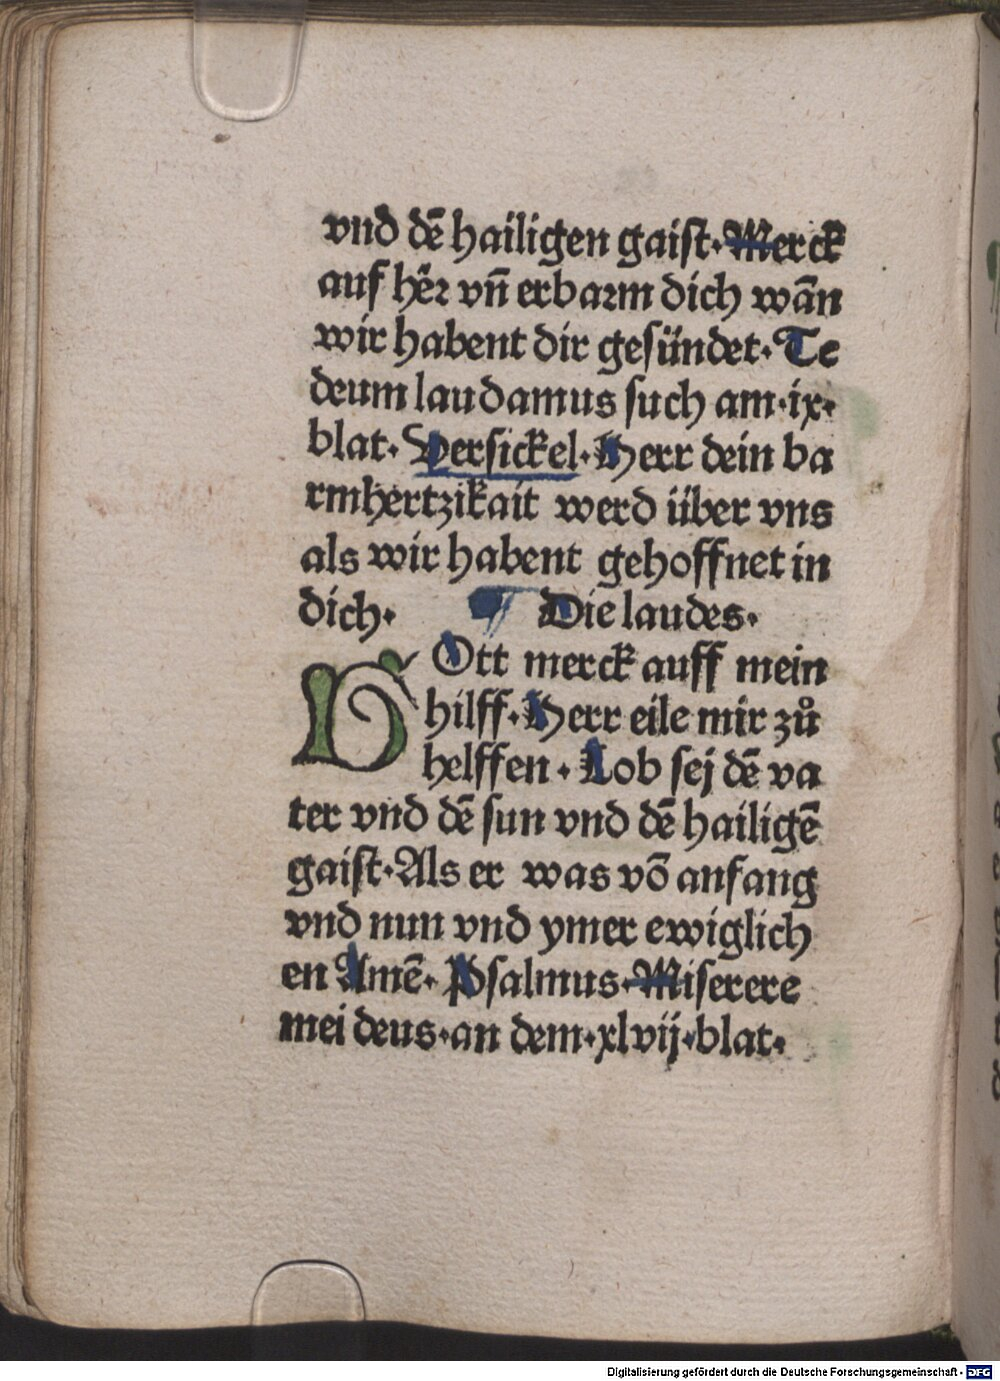 vnd dē hailigen gaiſt·Merck
auf hēr vn̄ erbarm dich wān
wir habent dir geſündet·Te
deum laudamus ſuch am·ix·
blat·Verſickel·Herr dein ba
rmhertzikait werd über vns
als wir habent gehoffnet in
dich· Die laudes·
GOtt merck auff mein
hilff·Herr eile mir zů
helffen·Lob ſej dē va
ter vnd dē ſun vnd dē hailigē
gaiſt·Als er was vō anfang
vnd nun vnd ymer ewiglich
en Amē·Pſalmus·Miſerere
mei deus·an dem·xlvij·blat·
Digitalisierung gefördert durch die Deutsche Forschungsgemeinschaft - DFG